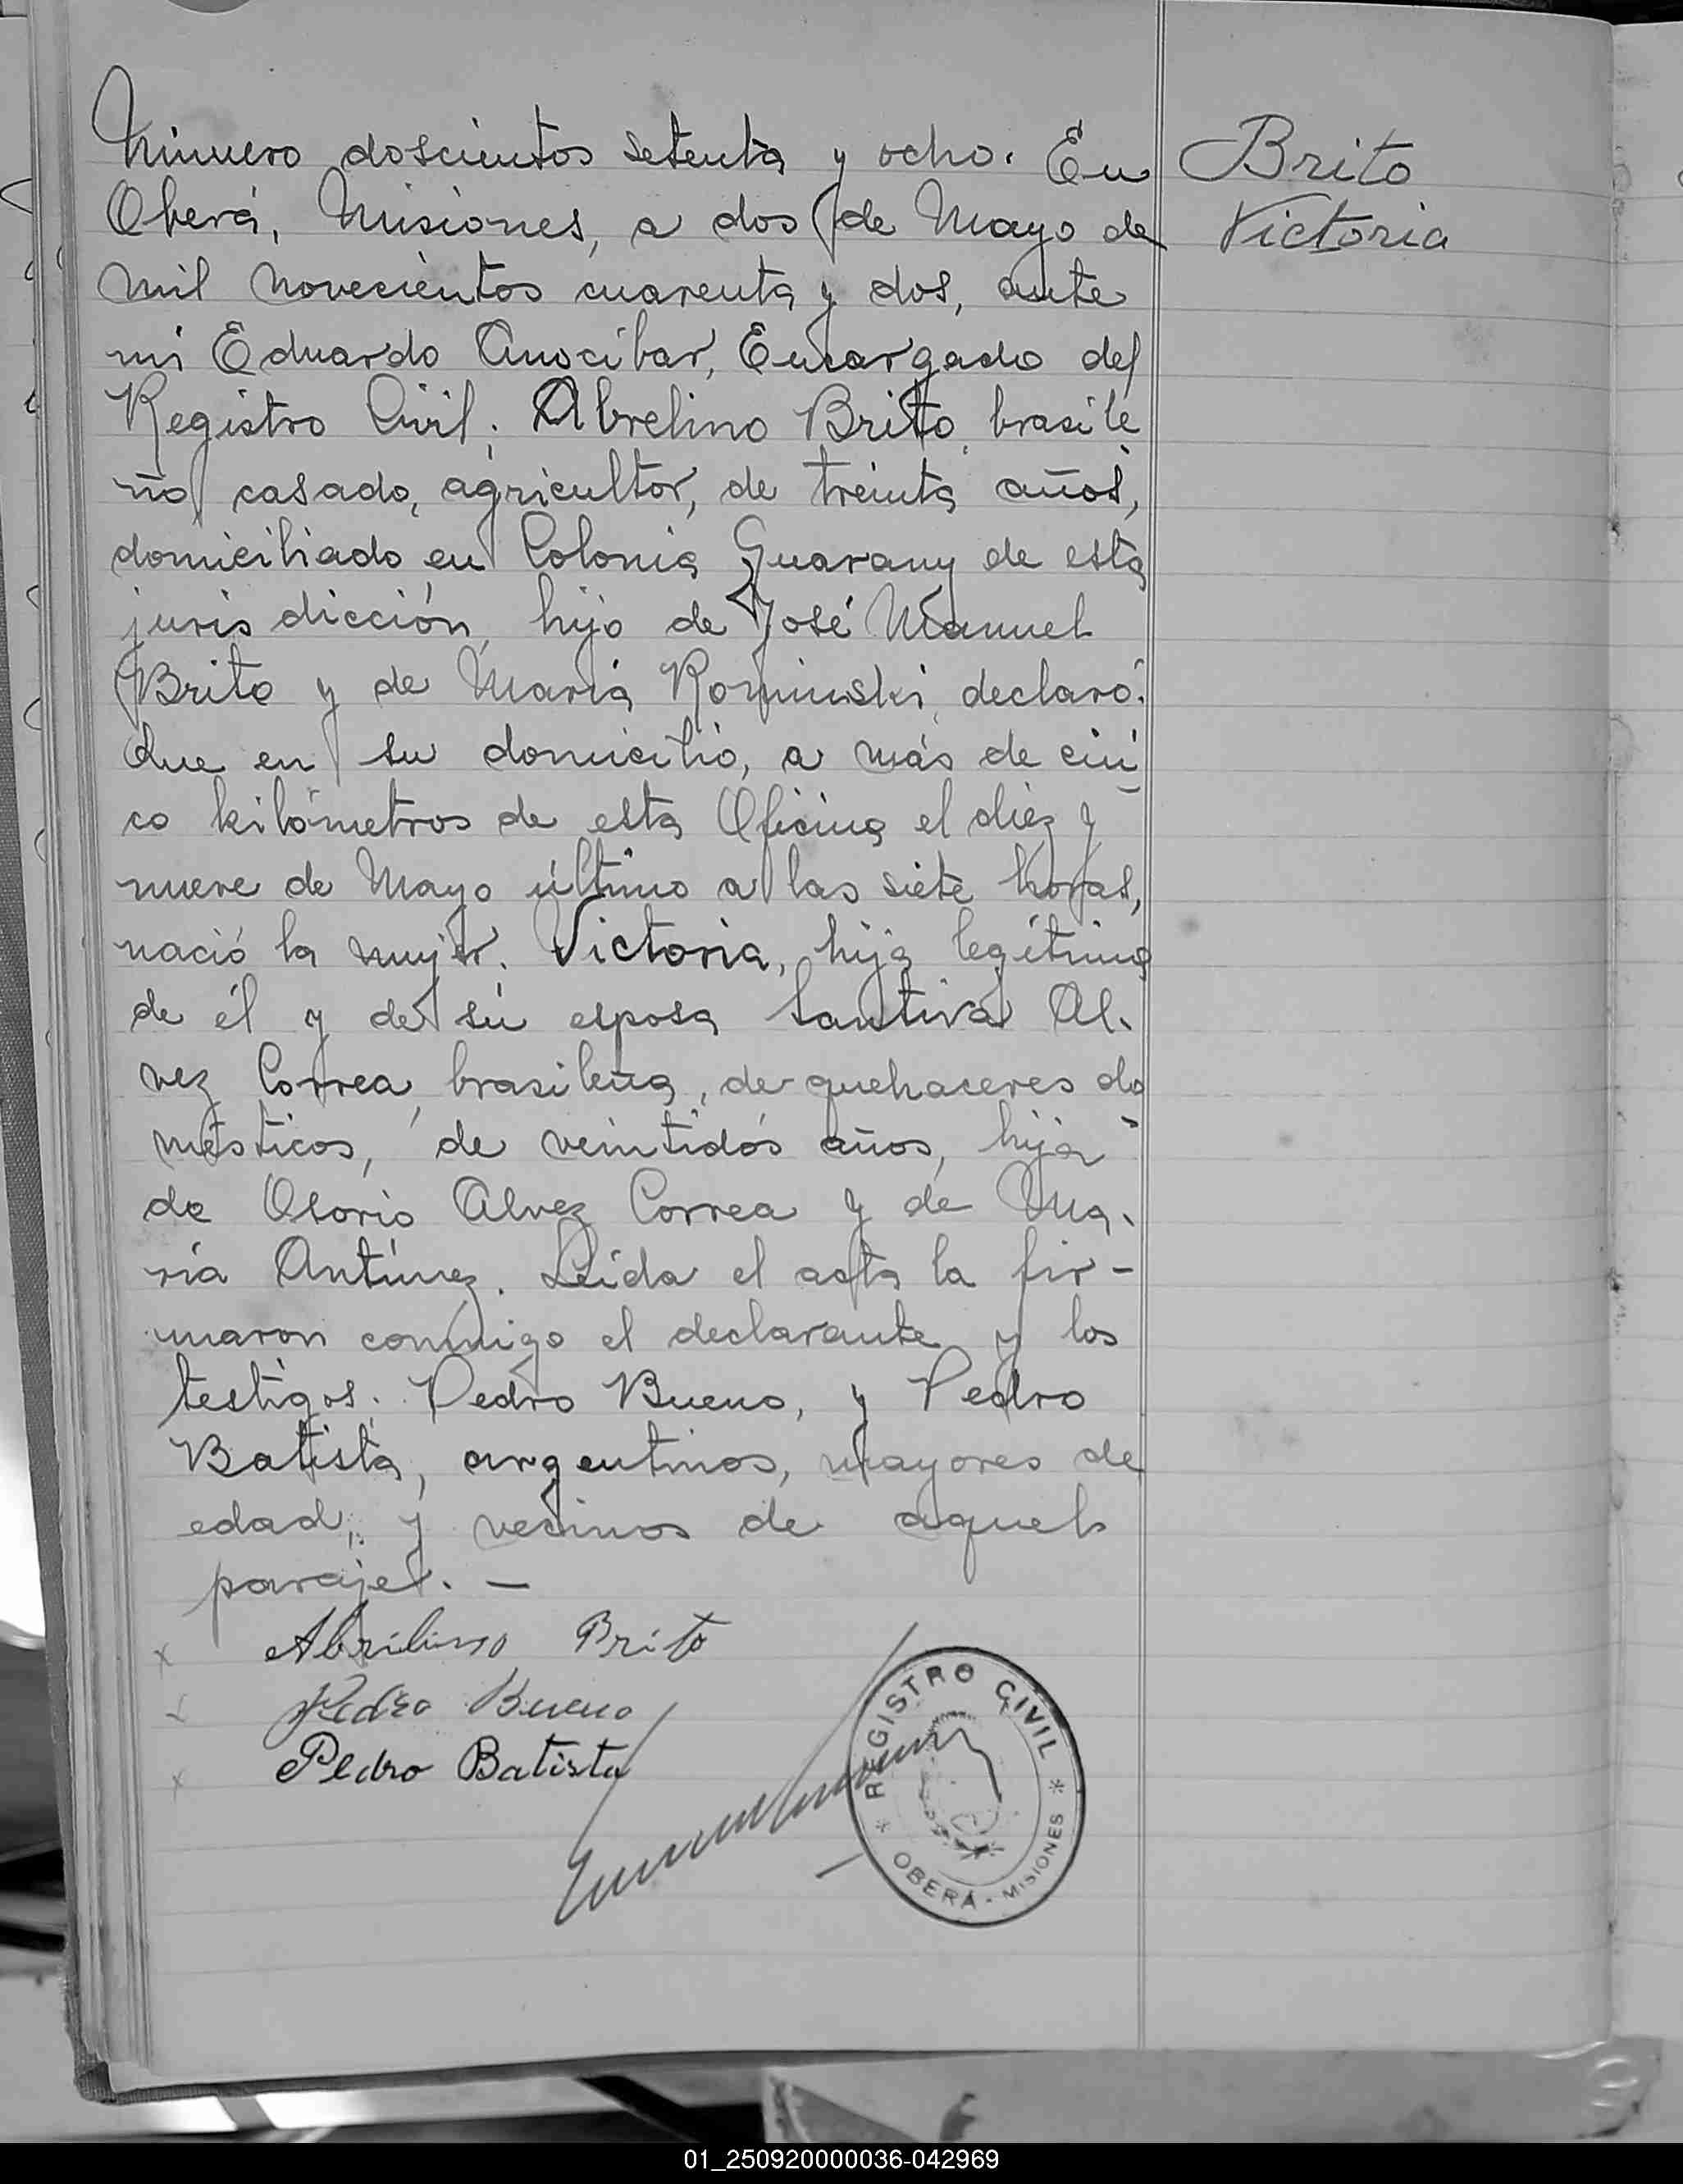 Número doscientos setenta y ocho. En
Oberá, Misiones, a dos de Mayo de
mil novecientos cuarenta y dos, ante
mi Eduardo Anocibar, Encargado del
Registro Civil; Abrelino Brito, brasile
ño casado, agricultor, de treinta años,
domiciliado en Colonia Guarany de esta
jurisdicción, hijo de José Manuel
Brito y de María Rominski, declaró:
Que en su domicilio, a más de cin
co kilómetros de esta Oficina el diez y
nueve de Mayo último a las siete horas,
nació la mujer. Victoria, hija legítima
de él y de su esposa Santiva Al-
vez Correa, brasileña, de quehaceres do
mésticos, de veintidós años, hija
de Osorio Alvez Correa y de Ma-
ría Antúnez. Leída el acta la fir-
maron conmigo el declarante y los
testigos: Pedro Bueno, y Pedro
Batista, argentinos, mayores de
edad, y vecinos de aquel
paraje. —
Abrilino Brito
Pedro Bueno
Pedro Batista
REGISTRO CIVIL
* OBERÁ - MISIONES *
Brito
Victoria
01_250920000036-042969